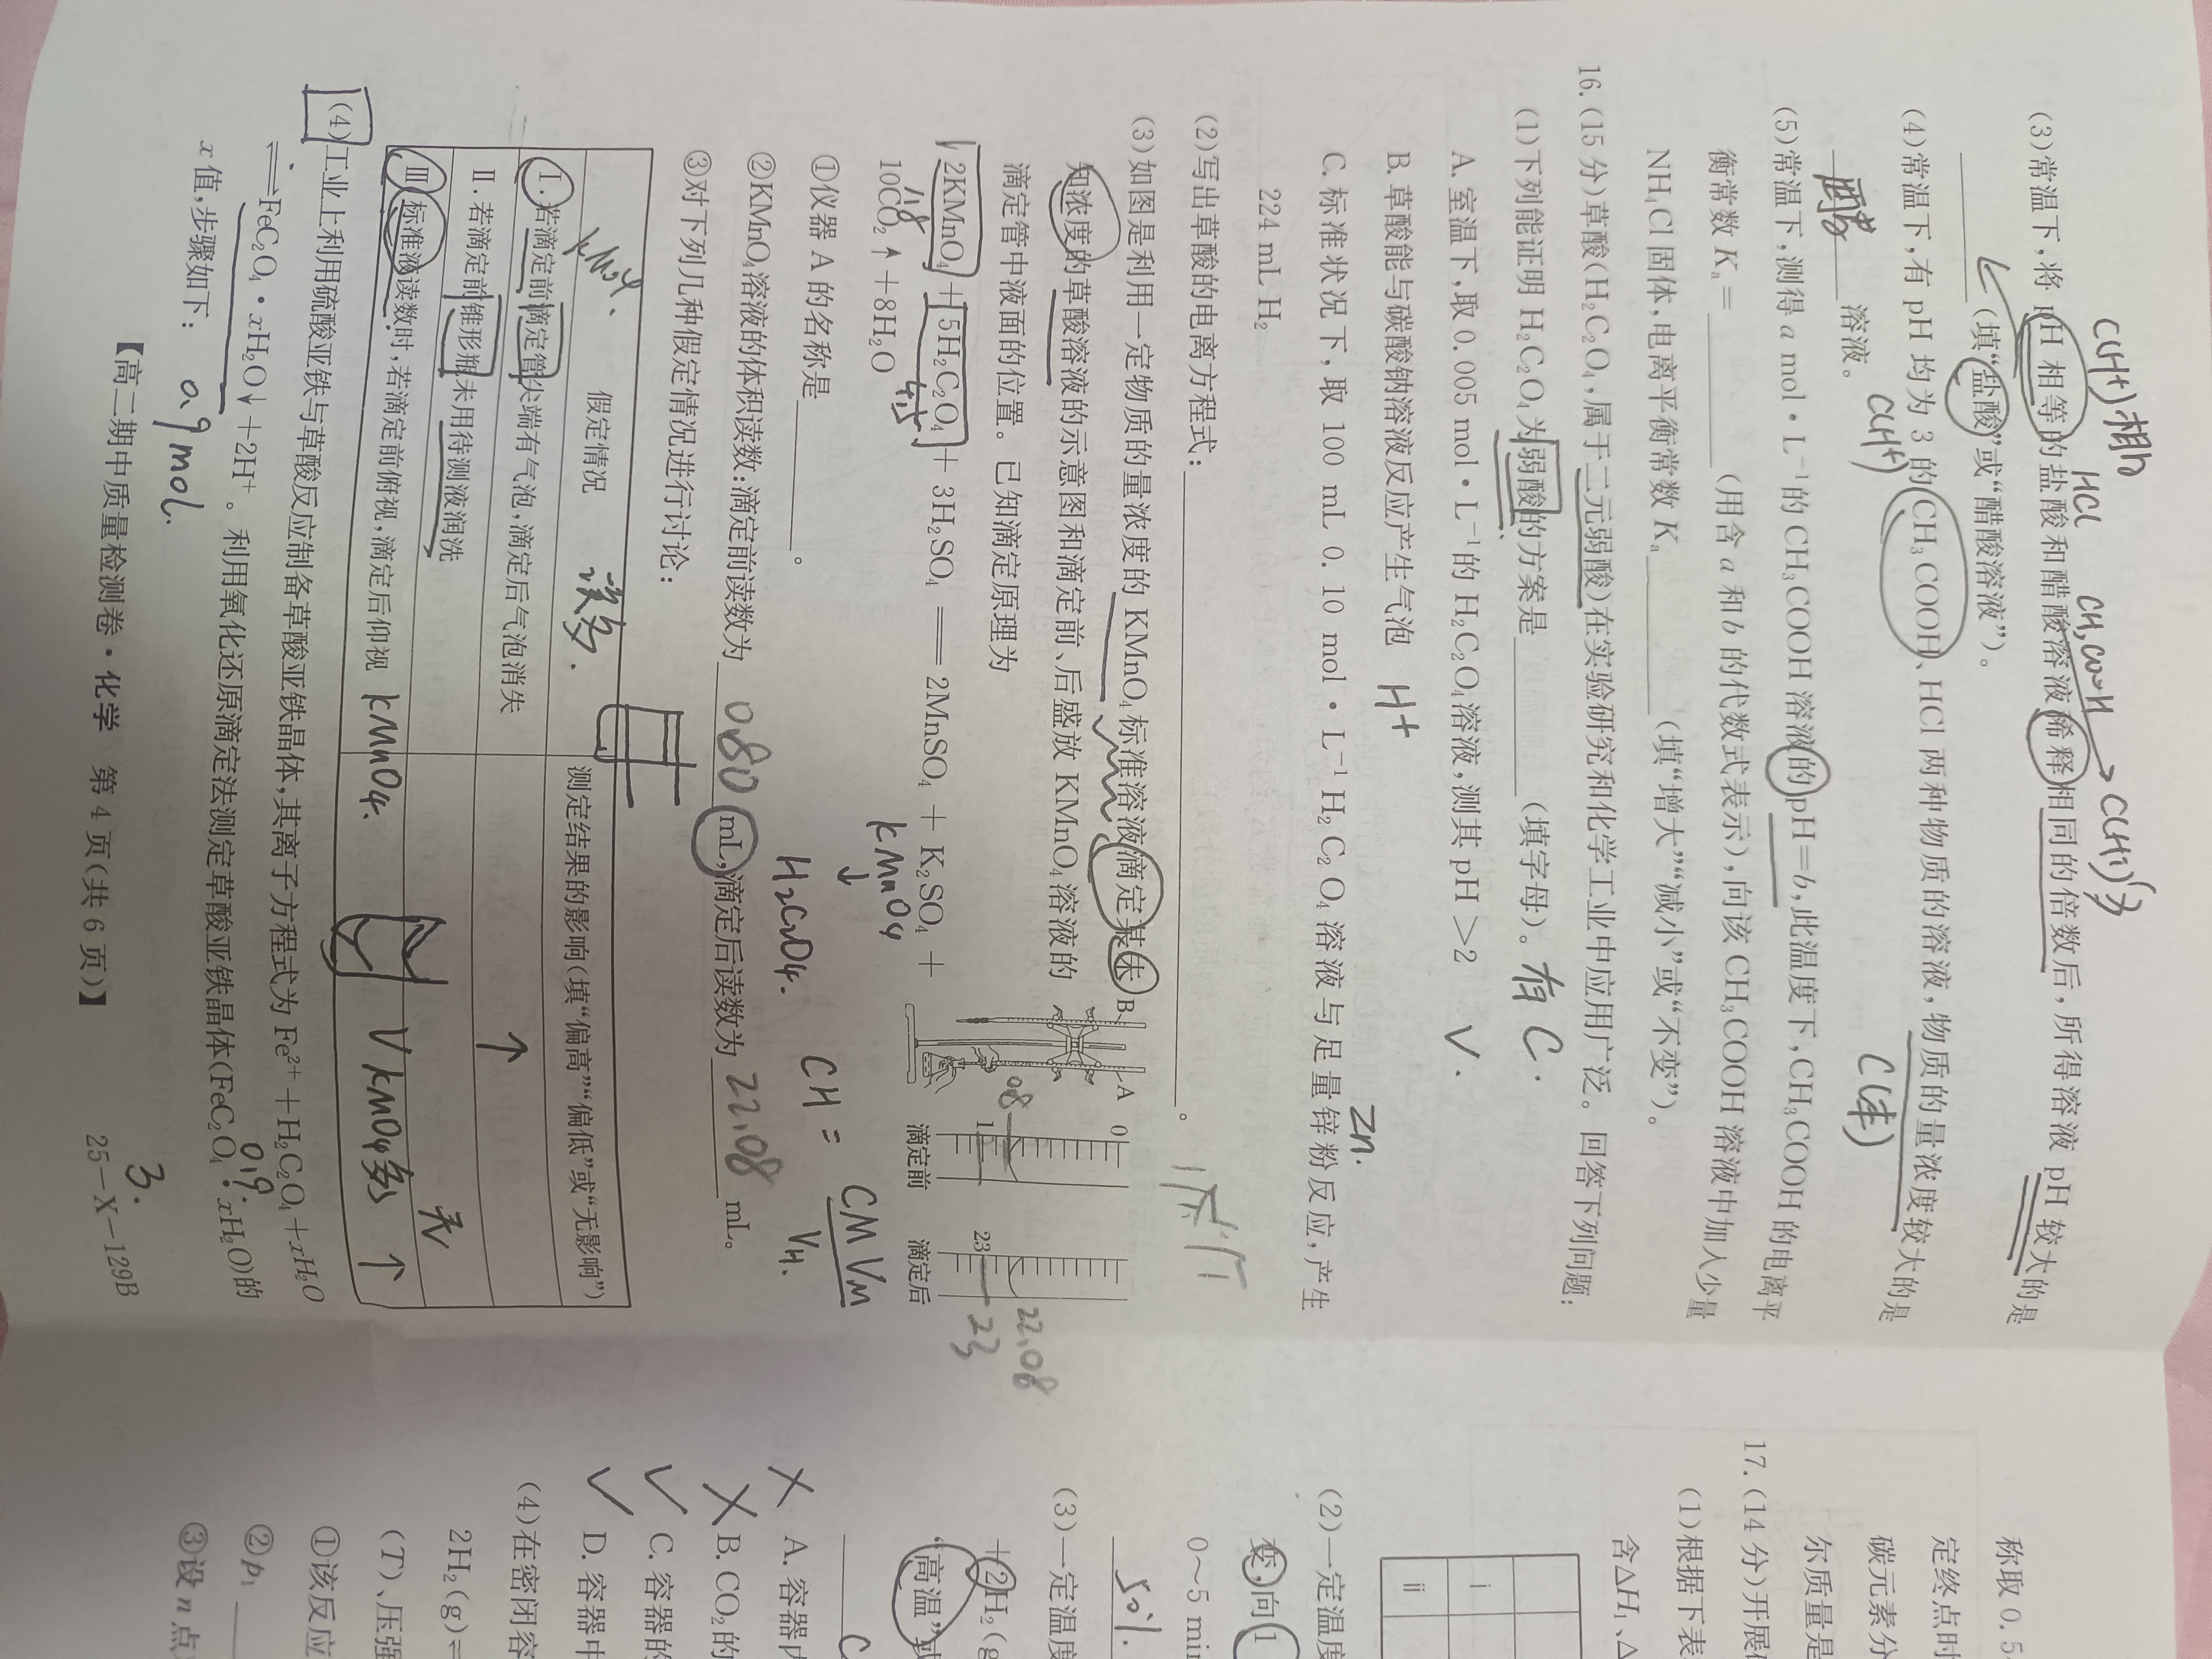 C(H+)相h
HCl CH3COOH → C(H+)多
(3)常温下,将 pH 相等的盐酸和醋酸溶液稀释相同的倍数后,所得溶液 pH 较大的是
________(填“盐酸”或“醋酸溶液”)。
C(H+) C(酸)
(4)常温下,有 pH 均为 3 的 CH₃COOH、HCl 两种物质的溶液,物质的量浓度较大的是
醋酸 溶液。
(5)常温下,测得 a mol·L⁻¹的 CH₃COOH 溶液的 pH=b,此温度下,CH₃COOH 的电离平
衡常数 Kₐ=________(用含 a 和 b 的代数式表示),向该 CH₃COOH 溶液中加入少量
NH₄Cl 固体,电离平衡常数 Kₐ________(填“增大”“减小”或“不变”)。
16.(15 分)草酸(H₂C₂O₄,属于二元弱酸)在实验研究和化学工业中应用广泛。回答下列问题:
(1)下列能证明 H₂C₂O₄为弱酸的方案是________(填字母)。 有 C.
A. 室温下,取 0.005 mol·L⁻¹的 H₂C₂O₄溶液,测其 pH>2 √.
B. 草酸能与碳酸钠溶液反应产生气泡 H+
Zn.
C. 标准状况下,取 100 mL 0.10 mol·L⁻¹ H₂C₂O₄ 溶液与足量锌粉反应,产生
224 mL H₂
(2)写出草酸的电离方程式:________________。
(3)如图是利用一定物质的量浓度的 KMnO₄标准溶液滴定某未
知浓度的草酸溶液的示意图和滴定前、后盛放 KMnO₄溶液的
滴定管中液面的位置。已知滴定原理为
2KMnO₄+5H₂C₂O₄+3H₂SO₄══2MnSO₄+K₂SO₄+
10CO₂↑+8H₂O
KMnO4
B
A
0
1
08
滴定前
23
滴定后
22.08
23
①仪器 A 的名称是________。
H2C2O4. CH = CMVM
VH.
②KMnO₄溶液的体积读数:滴定前读数为 0.80 mL,滴定后读数为 22.08 mL。
③对下列几种假定情况进行讨论:
假定情况 读多. 测定结果的影响(填“偏高”“偏低”或“无影响”)
KMnO4.
Ⅰ.若滴定前滴定管尖端有气泡,滴定后气泡消失
Ⅱ.若滴定前锥形瓶未用待测液润洗 ↑
Ⅲ.标准液读数时,若滴定前俯视,滴定后仰视 KMnO4. V KMnO4多 ↑
(4)工业上利用硫酸亚铁与草酸反应制备草酸亚铁晶体,其离子方程式为 Fe²⁺+H₂C₂O₄+xH₂O
⇌FeC₂O₄·xH₂O↓+2H⁺。利用氧化还原滴定法测定草酸亚铁晶体(FeC₂O₄·xH₂O)的
x 值,步骤如下:
0.9mol. 0.9. 3.
【高二期中质量检测卷·化学 第 4 页(共 6 页)】 25-X-129B
称取 0.5
定终点时
碳元素分
尔质量是
17.(14 分)开展
(1)根据下表
含△H₁、△
i
ii
(2)一定温度
变,向 1
0~5 min
50%.
(3)一定温度
+2H₂(g
“高温”或
C
× A. 容器内
× B. CO₂的
√ C. 容器的
√ D. 容器中
(4)在密闭容
2H₂(g)⇌
(T)、压强
①该反应
②p₁
③设 n 点